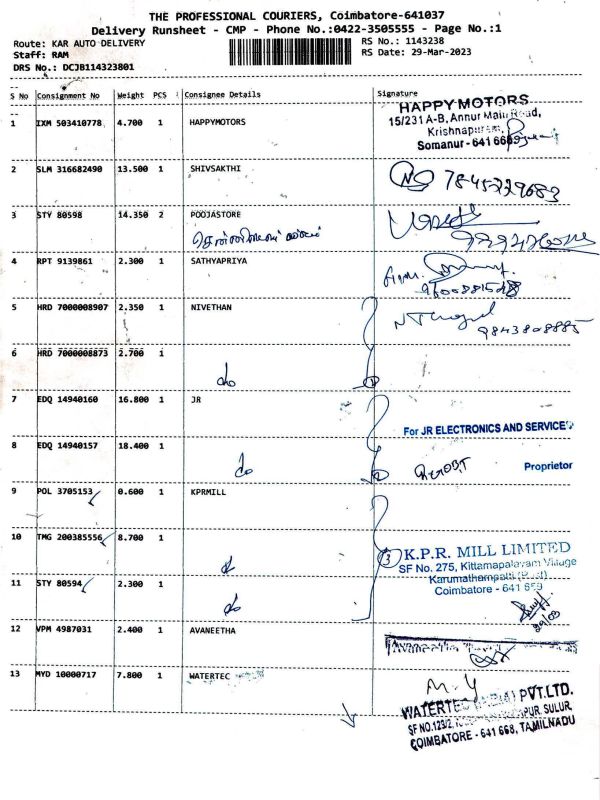 THE PROFESSIONAL COURIERS, Coimbatore-641037
Delivery Runsheet - CMP - Phone No.:0422-3505555 - Page No.:1
Route: KAR AUTO DELIVERY
RS No.: 1143238
Staff: RAM
RS Date: 29-Mar-2023
DRS No.: DCJB114323801
S No Consignment No Weight PCS Consignee Details Signature
1 IXM 503410778 4.700 1 HAPPYMOTORS
HAPPY MOTORS
15/231 A-B, Annur Main Road,
Krishnapuram,
Somanur - 641 668
2 SLM 316682490 13.500 1 SHIVSAKTHI
7845729683
3 STY 80598 14.350 2 POOJASTORE
4 RPT 9139861 2.300 1 SATHYAPRIYA
5 HRD 7000008907 2.350 1 NIVETHAN
9843808885
6 HRD 7000008873 2.700 1
do
7 EDQ 14940160 16.800 1 JR
For JR ELECTRONICS AND SERVICE
8 EDQ 14940157 18.400 1
do
Proprietor
9 POL 3705153 0.600 1 KPRMILL
10 TMG 200385556 8.700 1
do
3
K.P.R. MILL LIMITED
SF No. 275, Kittamapalayam Village
Karumathampatti (Post)
Coimbatore - 641 659
11 STY 80594 2.300 1
do
29/03
12 VPM 4987031 2.400 1 AVANEETHA
13 MYD 10000717 7.800 1 WATERTEC
M.Y
WATERTEC PVT.LTD.
SF NO.123/2, SULUR,
COIMBATORE - 641 668, TAMILNADU